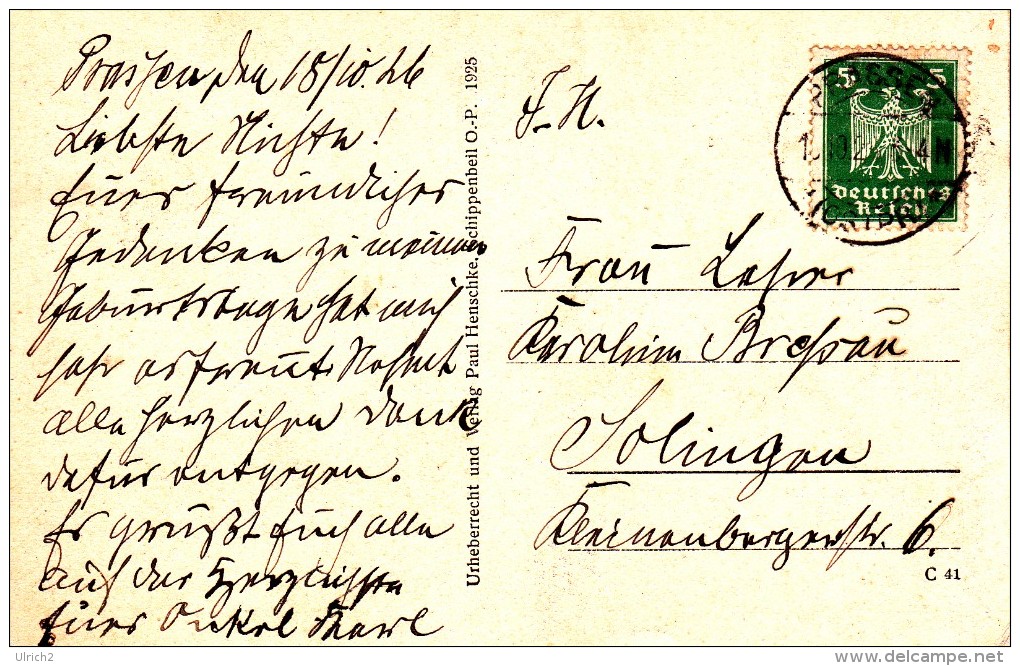 Prassen den 18/10.26
Liebste Nichte!
Euer freundliches
Gedenken zu meinem
Geburtstage hat mich
sehr erfreut. Nehmt
alle herzlichen Dank
dafür entgegen.
Es grüßt Euch alle
auf das Herzlichste
Euer Onkel Karl
Urheberrecht und Verlag Paul Henschke, Schippenbeil O.-P. 1925
5 5
Deutsches
Reich
Frau Lehrer
Karoline
Solingen
6.
C 41
Ulrich2
www.delcampe.net